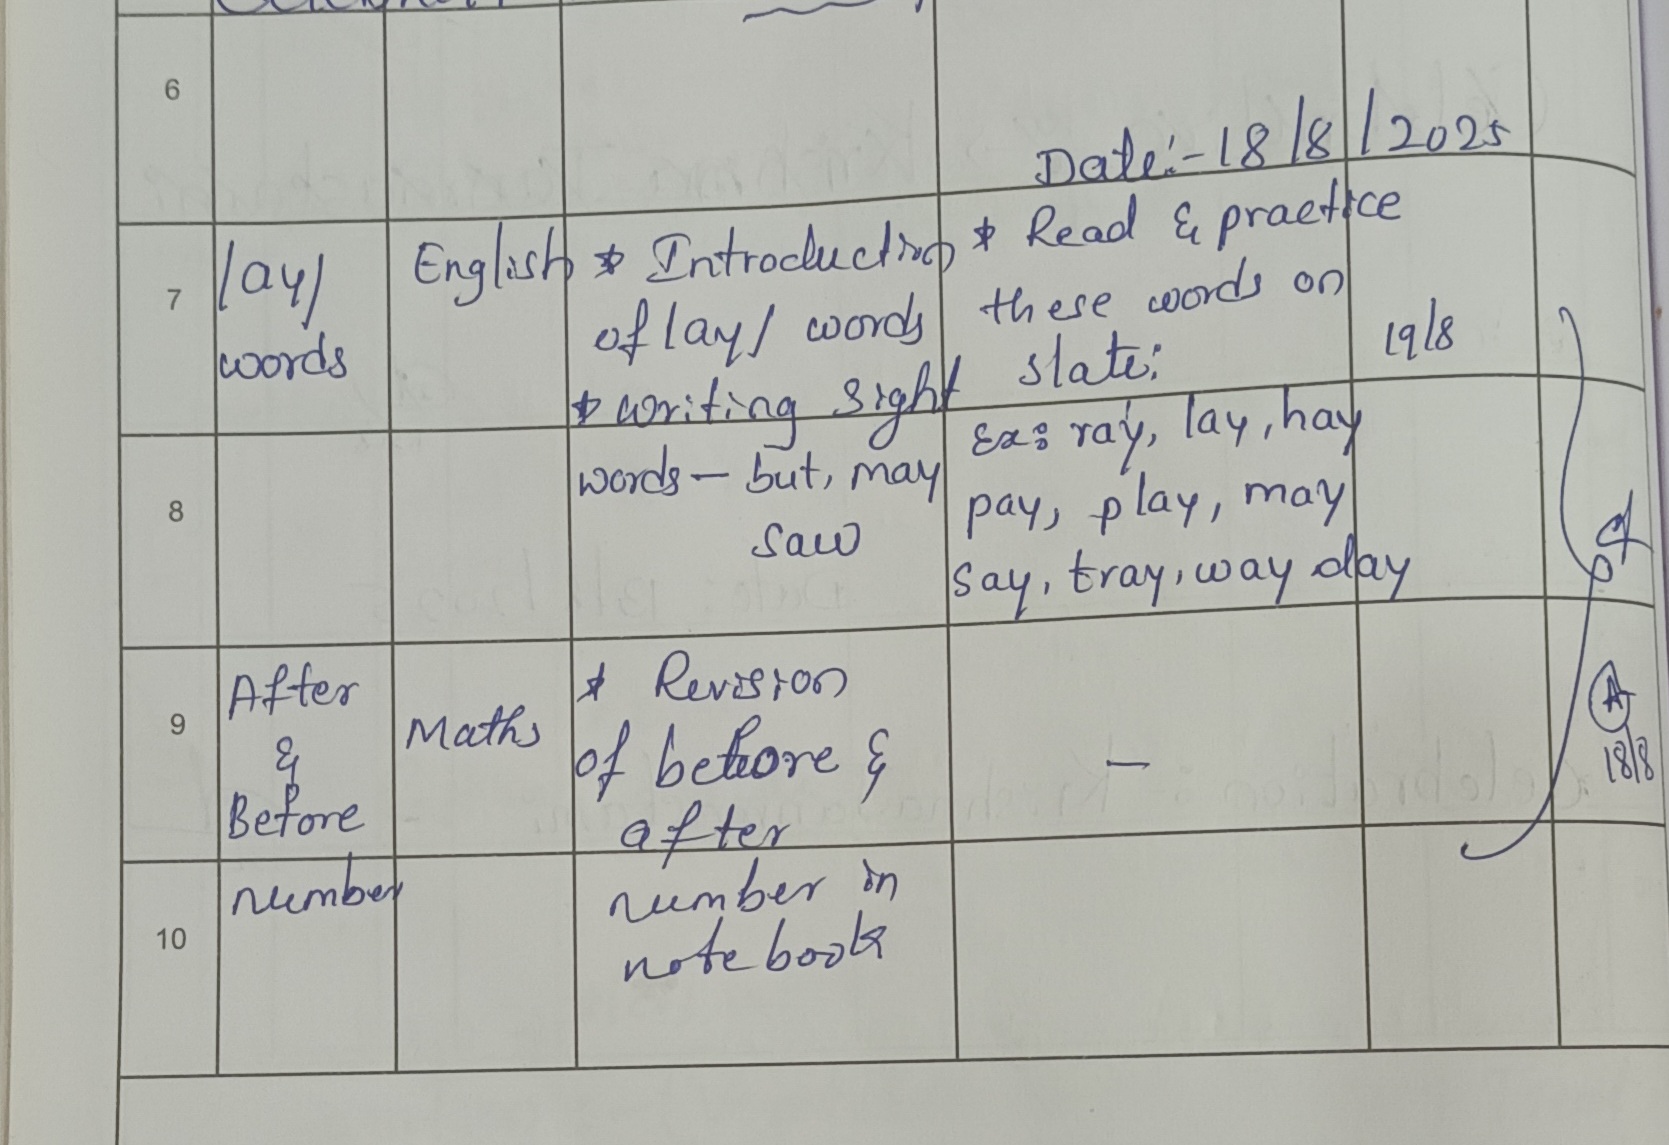 6
Date:-18/8/2025
7
/ay/
words
English
* Introduction
of /ay/ words
* writing sight
words - but, may
saw
* Read & practice
these words on
slate:
Ex: ray, lay, hay
pay, play, may
say, tray, way day
19/8
8
9
After
&
Before
number
Maths
* Revision
of before &
after
number in
notebook
-
A
18/8
10